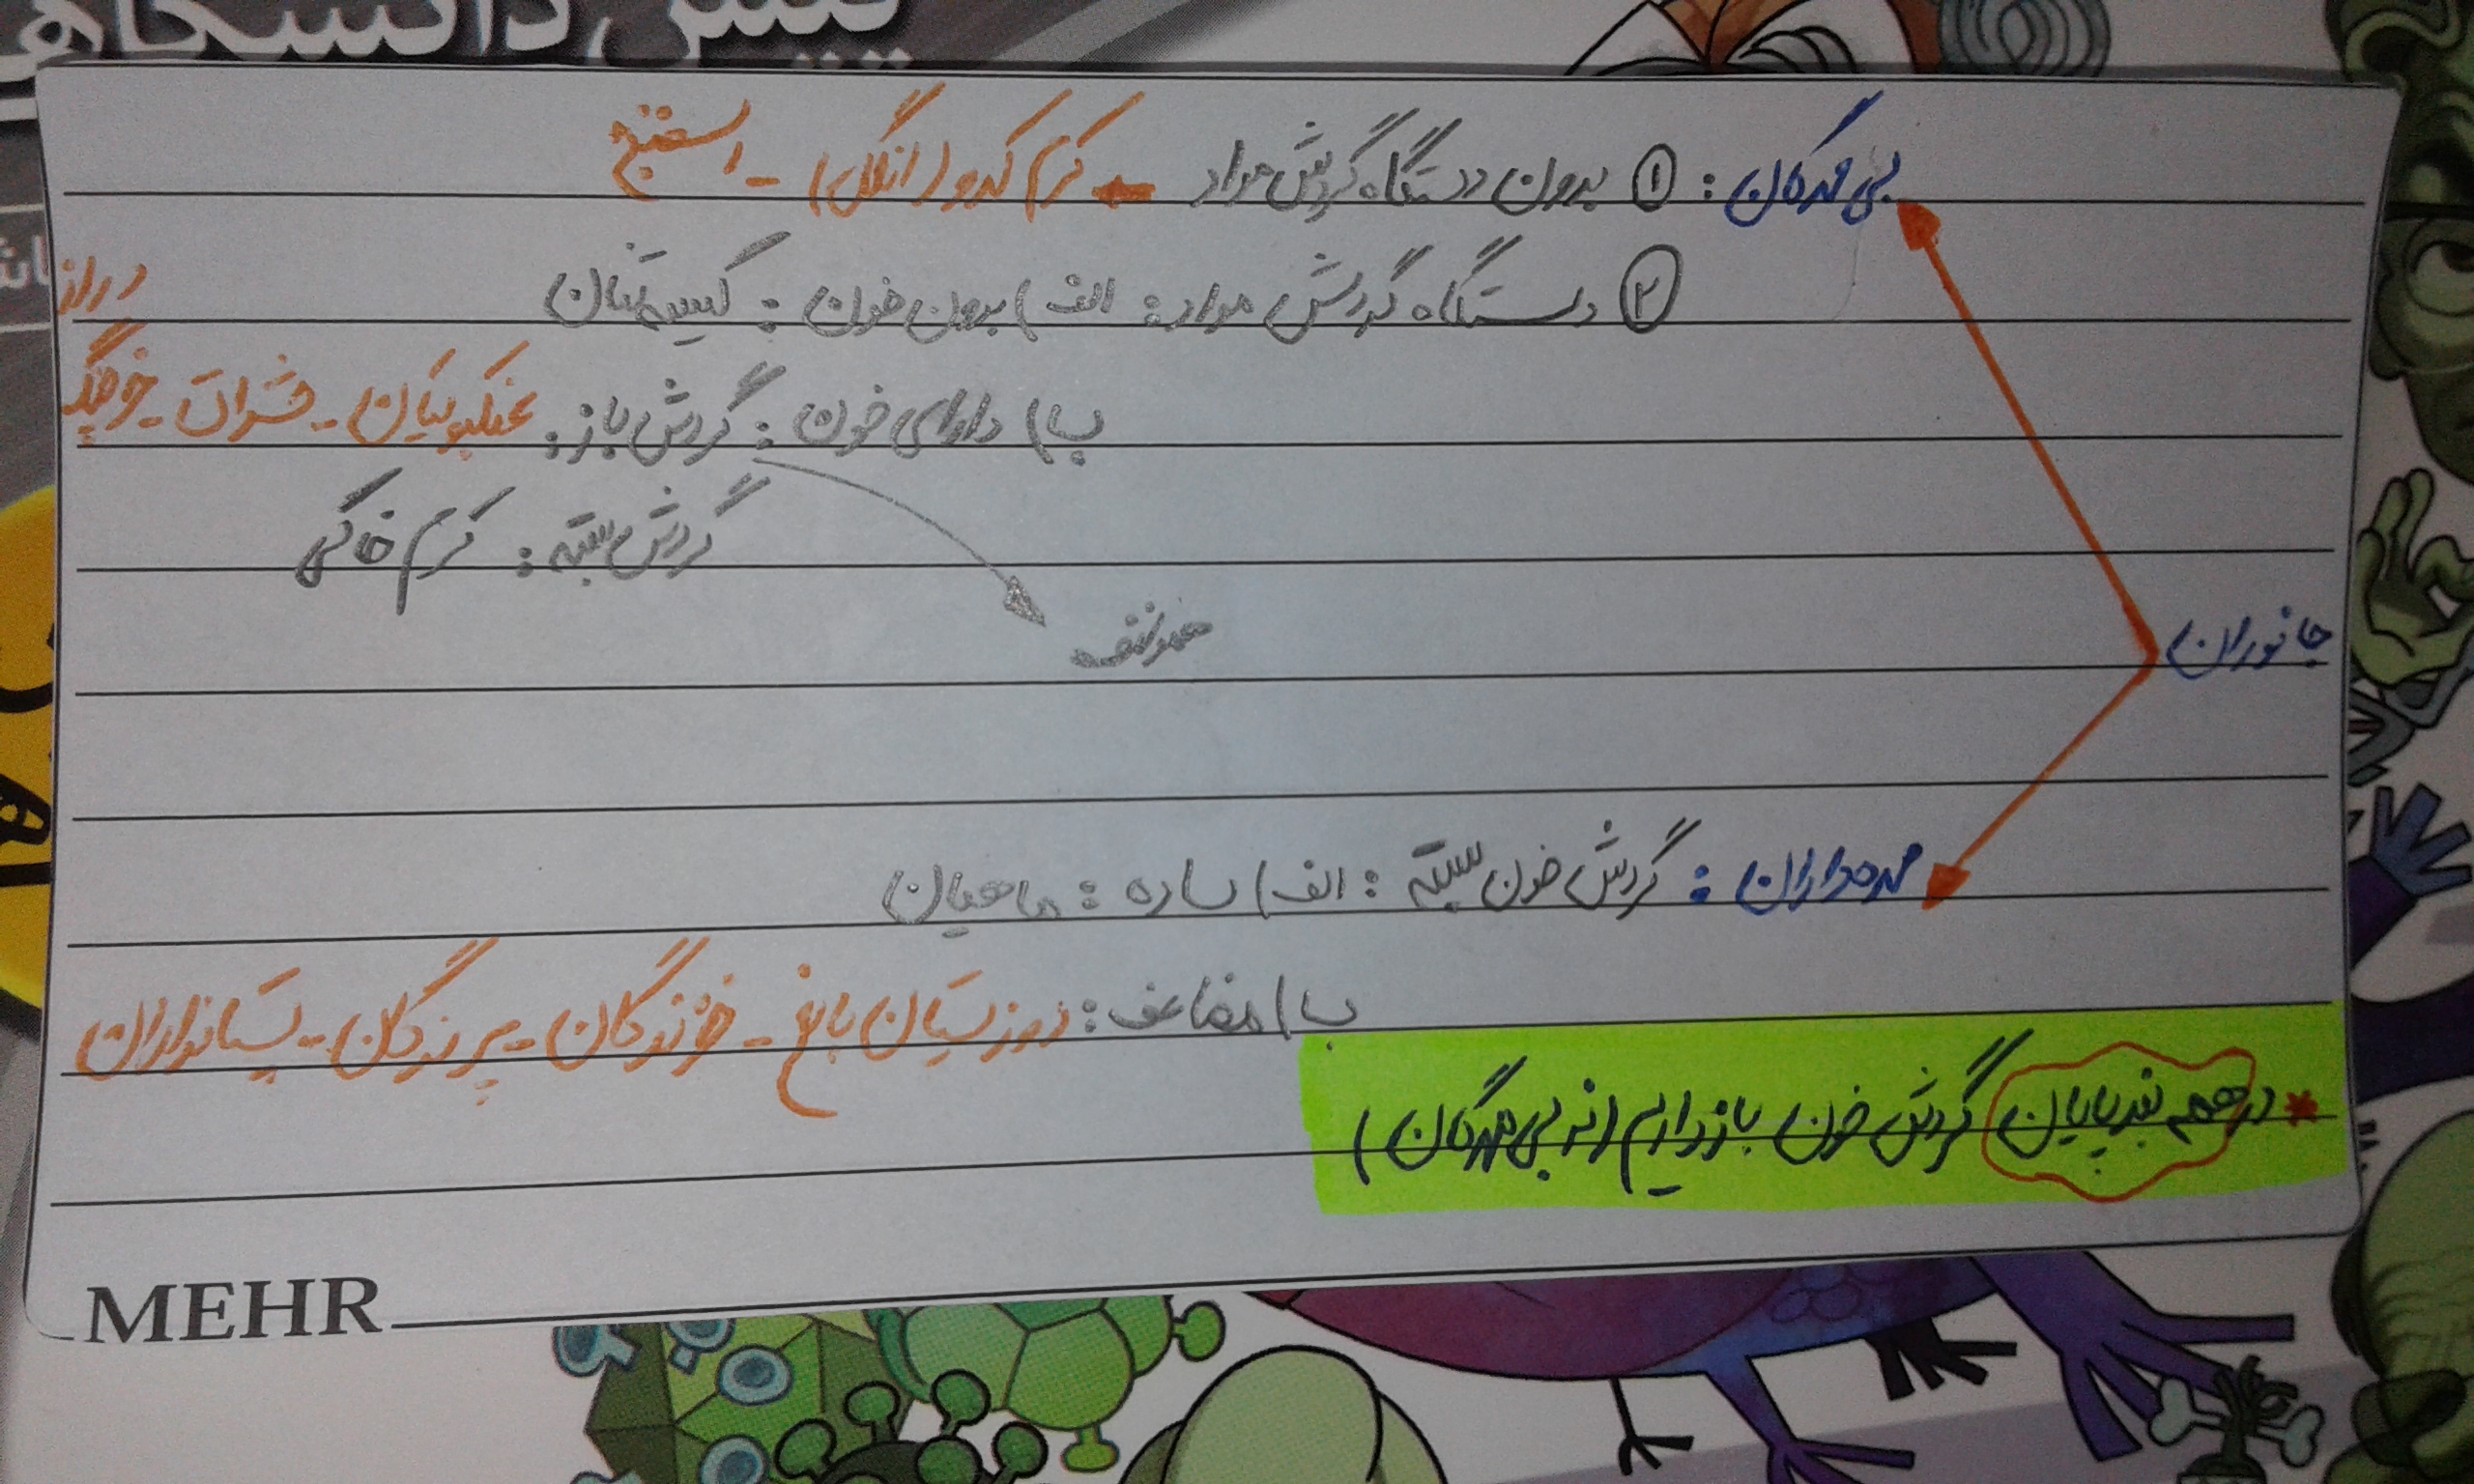 پیش دانشگاهی
بی مهرگان: ① بدون دستگاه گردش مواد ← کرم کدو (انگل) - اسفنج
② دستگاه گردش مواد: الف) بدون خون: کیسه‌تنان
ب) دارای خون: گردش باز: عنکبوتیان - حشرات - خرچنگ دراز
گردش بسته: کرم خاکی
همولنف
جانوران
مهره‌داران: گردش خون بسته: الف) ساده: ماهیان
ب) مضاعف: دوزیستان بالغ - خزندگان - پرندگان - پستانداران
* در همه بندپایان گردش خون باز داریم (نه بی مهرگان)
MEHR